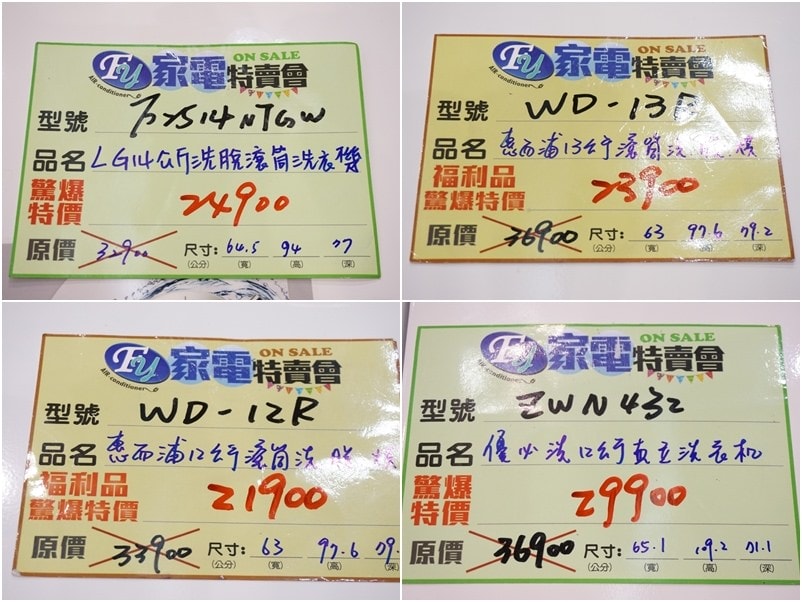 Fu 家電特賣會 ON SALE
AIR-conditioner
型號
品名 LG14公斤洗脫滾筒洗衣機
驚爆特價 24900
原價 32900 尺寸:(公分) 64.5(寬) 94(高) 77(深)
Fu 家電特賣會 ON SALE
AIR-conditioner
型號 WD-13R
品名 惠而浦13公斤滾筒洗
福利品
驚爆特價 23900
原價 36900 尺寸:(公分) 63(寬) 97.6(高) 79.2(深)
Fu 家電特賣會 ON SALE
AIR-conditioner
型號 WD-12R
品名 惠而浦12公斤滾筒洗
福利品
驚爆特價 21900
原價 33900 尺寸:(公分) 63(寬) 97.6(高) 79.
Fu 家電特賣會 ON SALE
AIR-conditioner
型號 ZWN432
品名 優必洗12公斤直立洗衣机
驚爆特價 29900
原價 36900 尺寸:(公分) 65.1(寬) 109.2(高) 71.1(深)